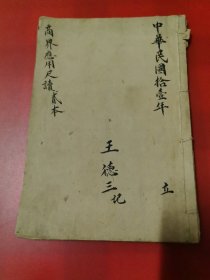 中華民國拾壹年
立
王德三记
商界應用尺牘貳本